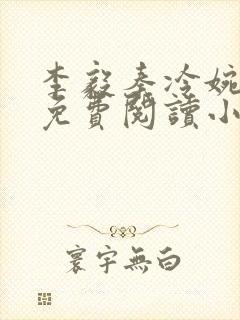 李毅秦冷婉
免費閱讀小
寰宇無白